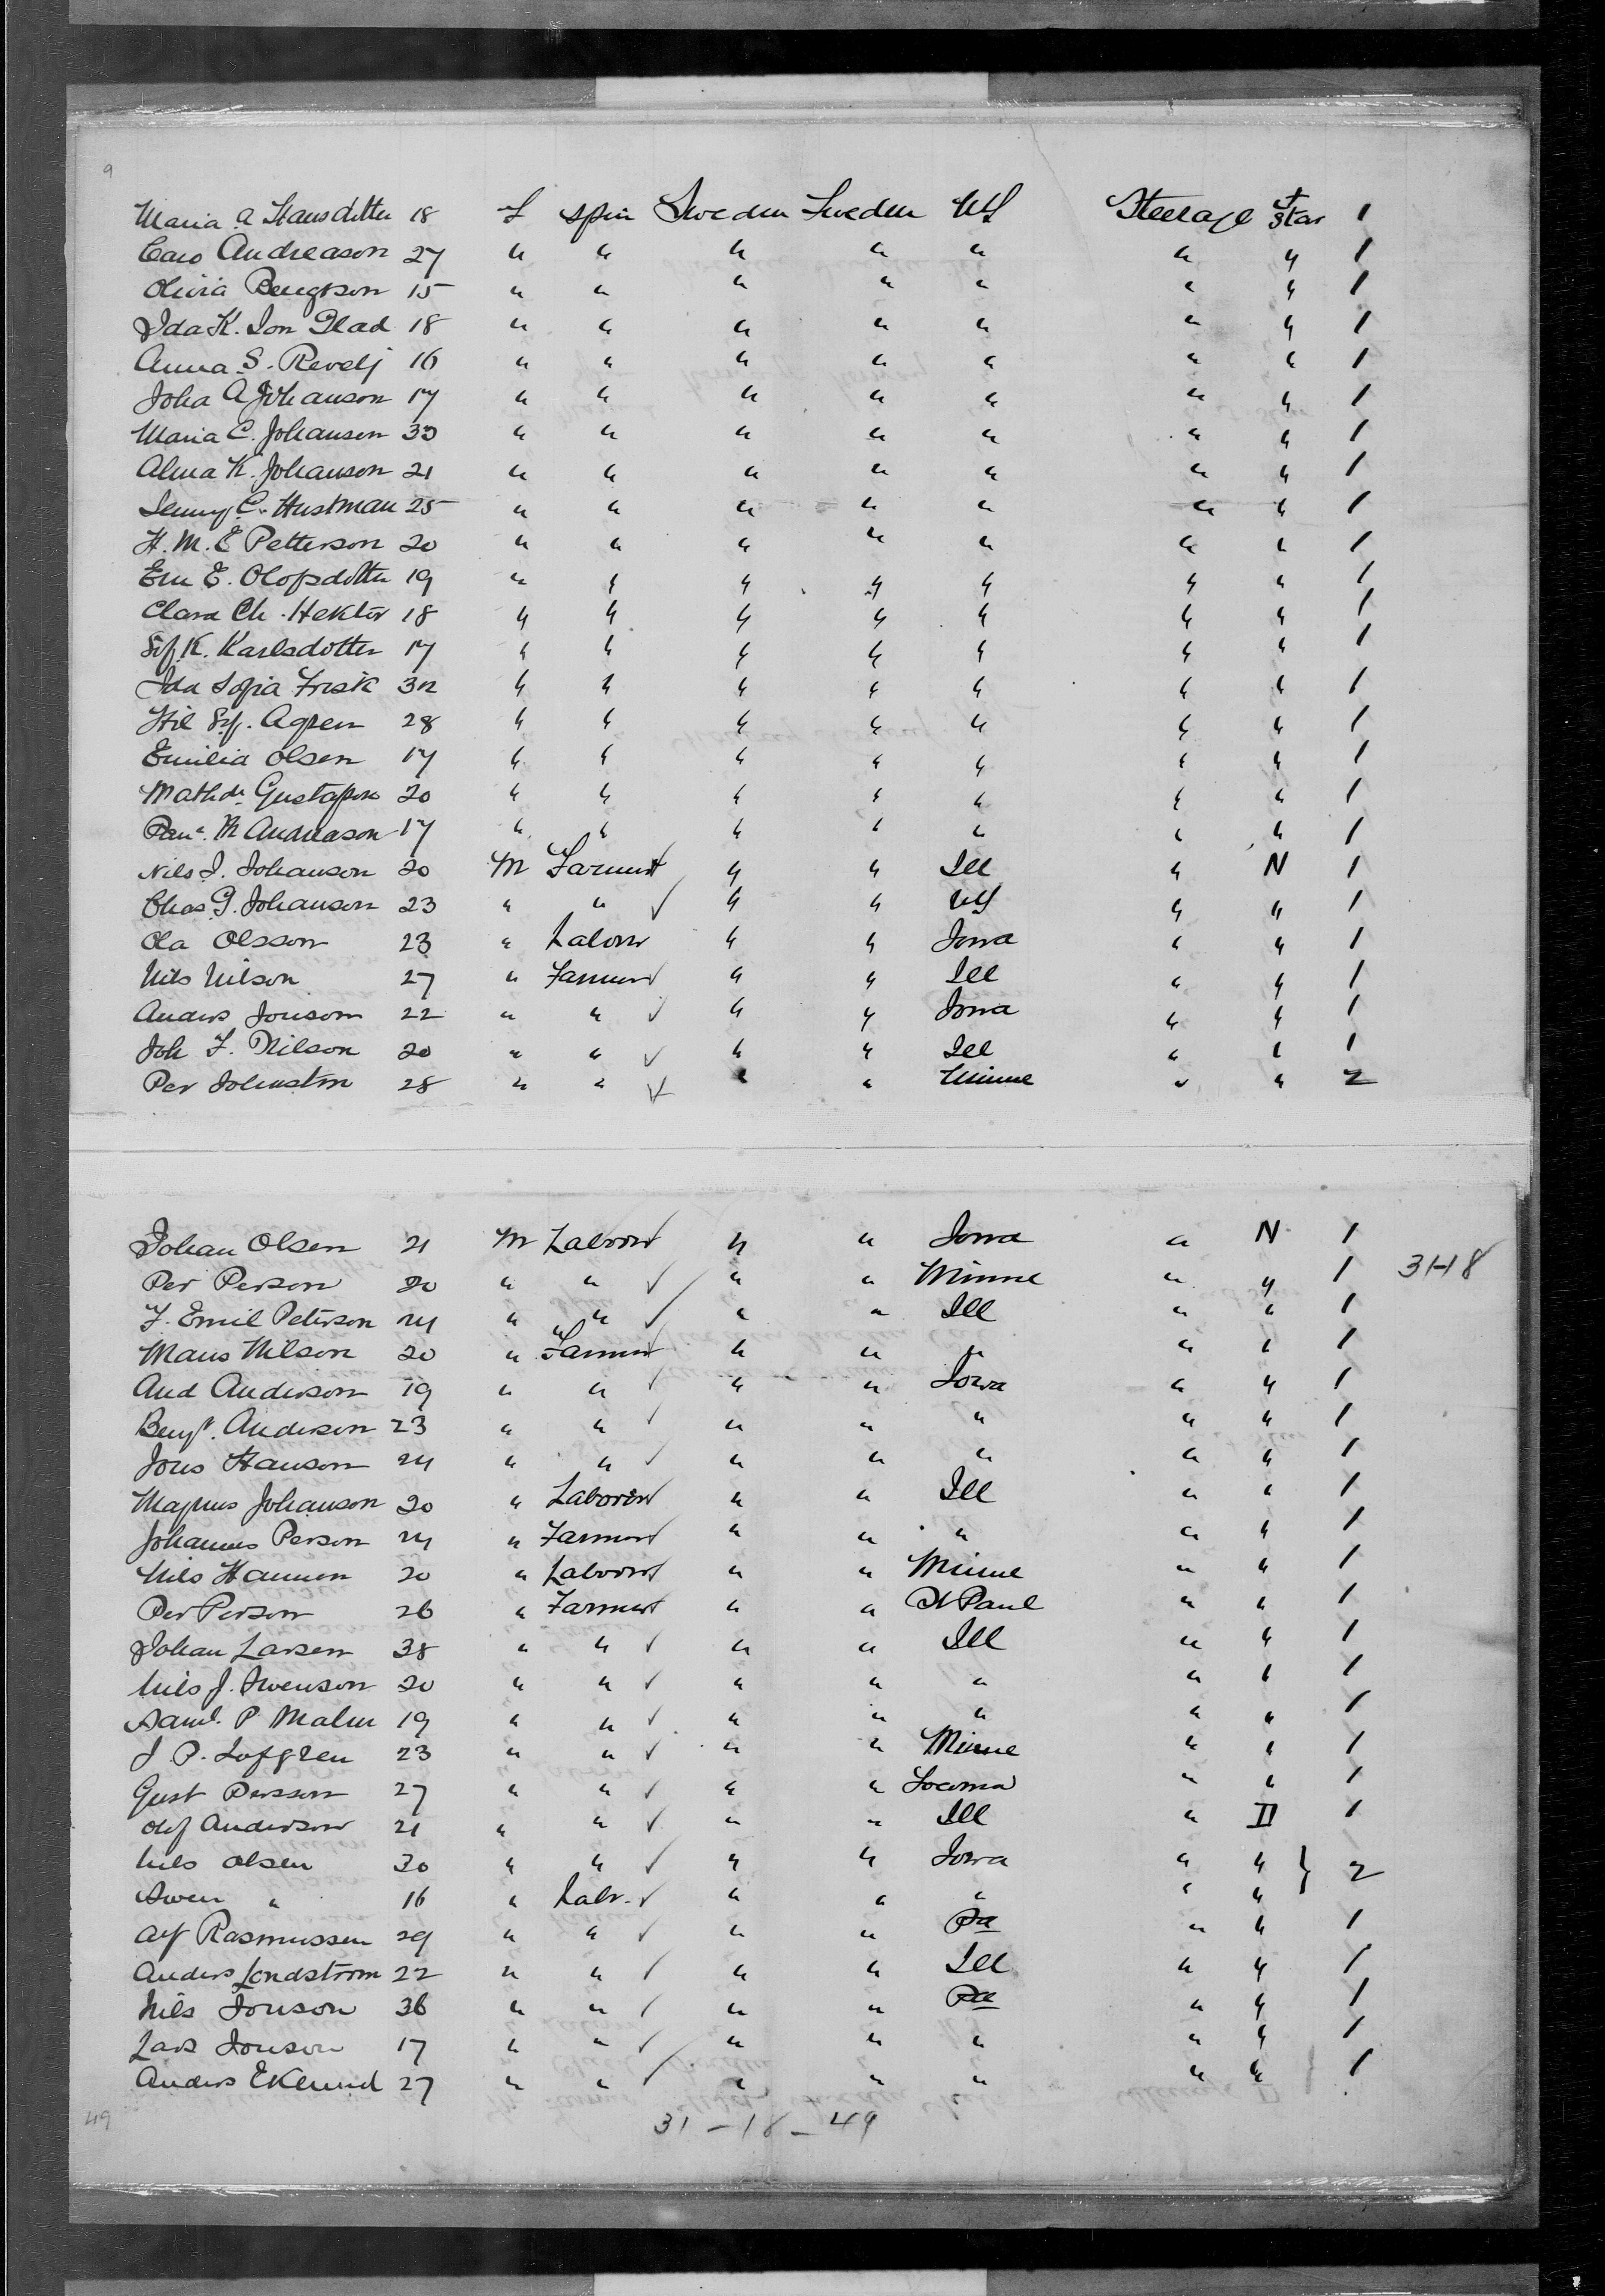 9
Maria A Hansdotter 18 F spin Sweden Sweden US Steerage F Star 1
Caro Andreason 27 " " " " " " " 1
Olivia Bengtson 15 " " " " " " " 1
Ida K. Son Glad 18 " " " " " " " 1
Anna S. Revelj 16 " " " " " " " 1
Joha A Johanson 17 " " " " " " " 1
Maria C. Johanson 33 " " " " " " " 1
Alma K. Johanson 21 " " " " " " " 1
Jenny C. Hustman 25 " " " " " " " 1
H. M. E Petterson 20 " " " " " " " 1
Em E. Olofsdotter 19 " " " " " " " 1
Clara Ch. Hektor 18 " " " " " " " 1
Sof. K. Karlsdotter 17 " " " " " " " 1
Ida Sofia Frisk 32 " " " " " " " 1
Hil Sof. Agren 28 " " " " " " " 1
Emilia Olsen 17 " " " " " " " 1
Mathde Gustafson 20 " " " " " " " 1
M Andreason 17 " " " " " " " 1
Nils J. Johanson 20 M Farmer " " Ill " N 1
Chas G. Johanson 23 " " " " US " " 1
Ola Olsson 23 " Labour " " Iowa " " 1
Nils Nilson 27 " Farmer " " Ill " " 1
Anders Jonson 22 " " " " Iowa " " 1
Joh F. Nilson 20 " " " " Ill " " 1
Per Johnston 28 " " " " Minne " " 2
Johan Olsen 21 M Labour " " Iowa " N 1
Per Person 20 " " " " Minne " " 1 31-18
F. Emil Peterson 24 " " " " Ill " " 1
Mans Nilson 20 " Farmer " " " " " 1
And Anderson 19 " " " " Iowa " " 1
Bengt. Anderson 23 " " " " " " " 1
Jons Hanson 24 " " " " " " " 1
Magnus Johanson 20 " Laborer " " Ill " " 1
Johannes Person 24 " Farmer " " " " " 1
Nils Hannon 20 " Labour " " Minne " " 1
Per Person 26 " Farmer " " St Paul " " 1
Johan Larsen 38 " " " " Ill " " 1
Nils J. Swenson 20 " " " " " " " 1
Saml. P. Malm 19 " " " " " " " 1
J P. Lofgren 23 " " " " Minne " " 1
Gust Persson 27 " " " " " " 1
Olof Anderson 21 " " " " Ill " II 1
Nils Olsen 30 " " " " Iowa " " } 2
Swen " 16 " Labr. " " " " "
Alf Rasmussen 29 " " " " Pa " " 1
Anders Londstrom 22 " " " " Ill " " 1
Nils Jonson 36 " " " " Pa " " 1
Lars Jonson 17 " " " " " " " 1
Anders Eklund 27 " " " " " " " 1
49 31 - 18 - 49